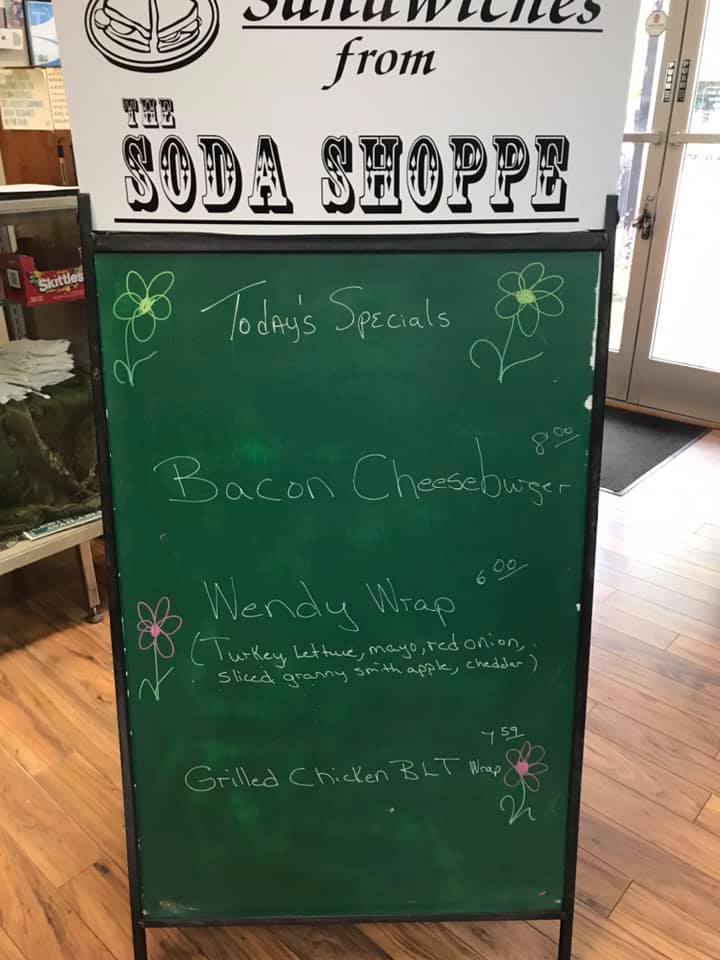 Sandwiches
from
THE
SODA SHOPPE
Skittles
Today's Specials
8.00
Bacon Cheeseburger
6.00
Wendy Wrap
(Turkey, Lettuce, mayo, red onion,
sliced granny smith apple, cheddar)
7.59
Grilled Chicken BLT Wrap